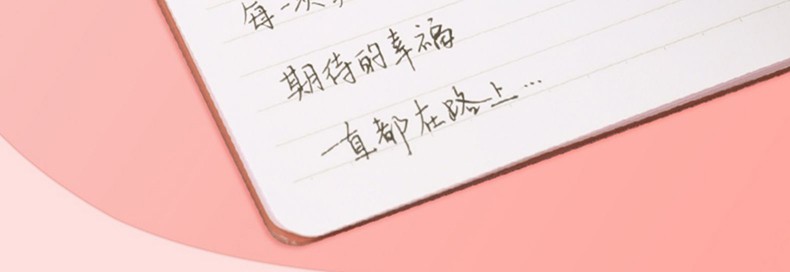 每一次
期待的幸福
一直都在路上…